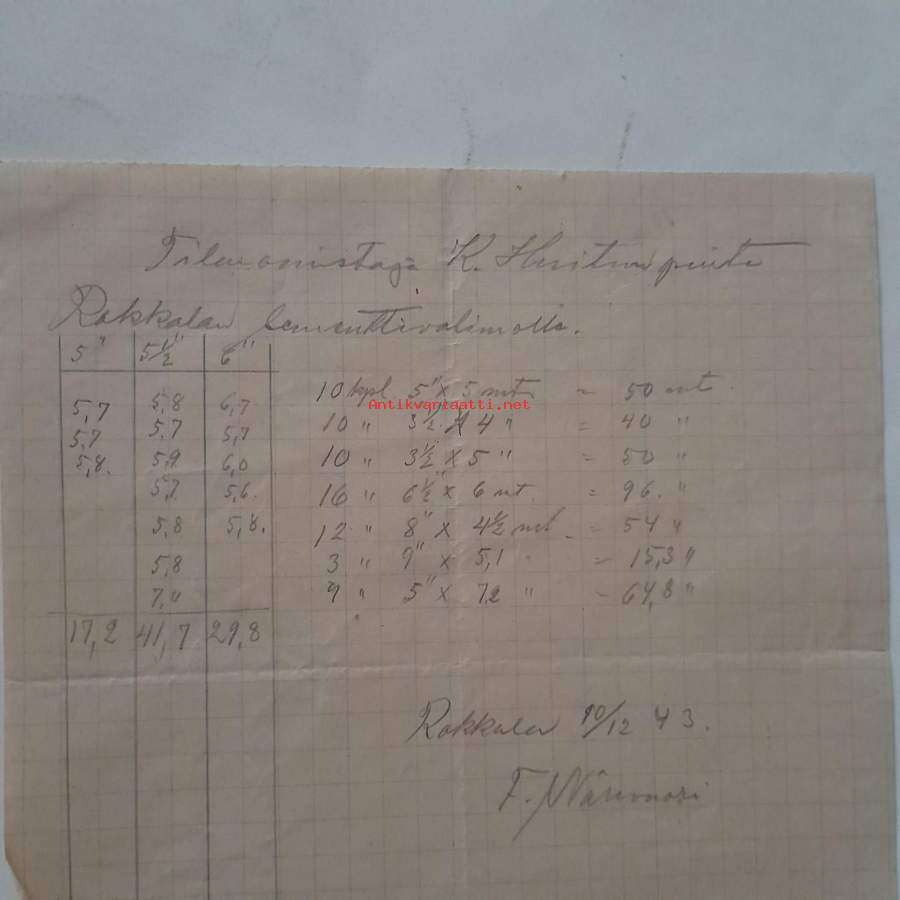 Tilanomistaja K. Huitun puita
Rokkalan Sementtivalimolle.
5" 5½" 6"
5,7 5,8 6,7
5,7 5,7 5,7
5,8. 5,9 6,0
5,7 5,6.
5,8 5,8.
5,8
7,0
17,2 41,7 29,8
10 kpl 5" x 5 mt = 50 mt.
Antikvariaatti.net
10 " 3½" x 4 " = 40 "
10 " 3½ x 5 " = 50 "
16 " 6½" x 6 mt. = 96. "
12 " 8" x 4½ mt. = 54 "
3 " 9" x 5,1 " = 15,3 "
9 " 5" x 7,2 " = 64,8 "
Rokkala 10/12 43.
F.